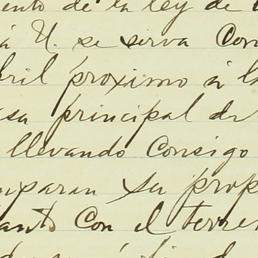 ento de la ley de
á U. se serva Con
bril proximo á l
sa principal de
llevando Consigo
mparan su prop
tanto Con el terre